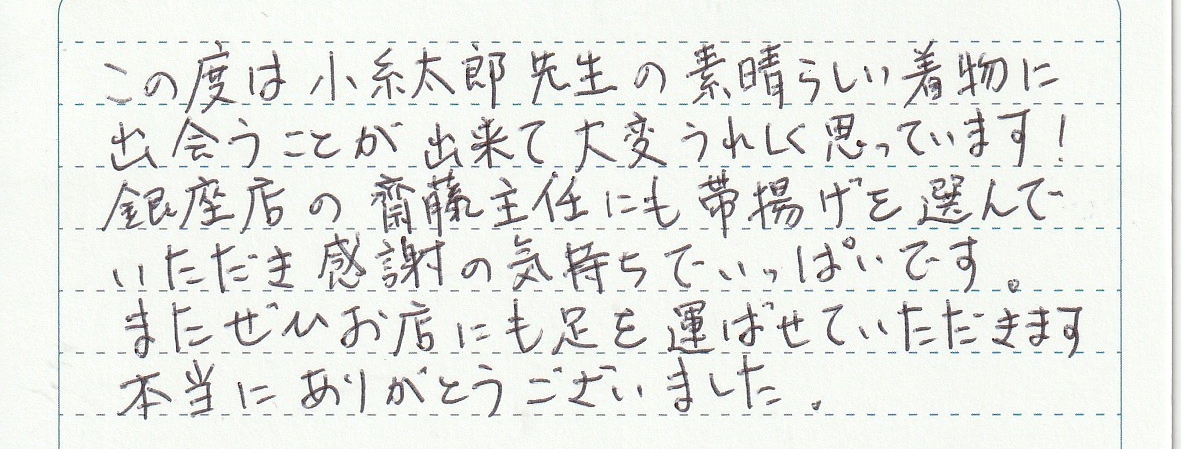 この度は小糸太郎先生の素晴らしい着物に
出会うことが出来て大変うれしく思っています!
銀座店の齋藤主任にも帯揚げを選んで
いただき感謝の気持ちでいっぱいです。
またぜひお店にも足を運ばせていただきます
本当にありがとうございました。